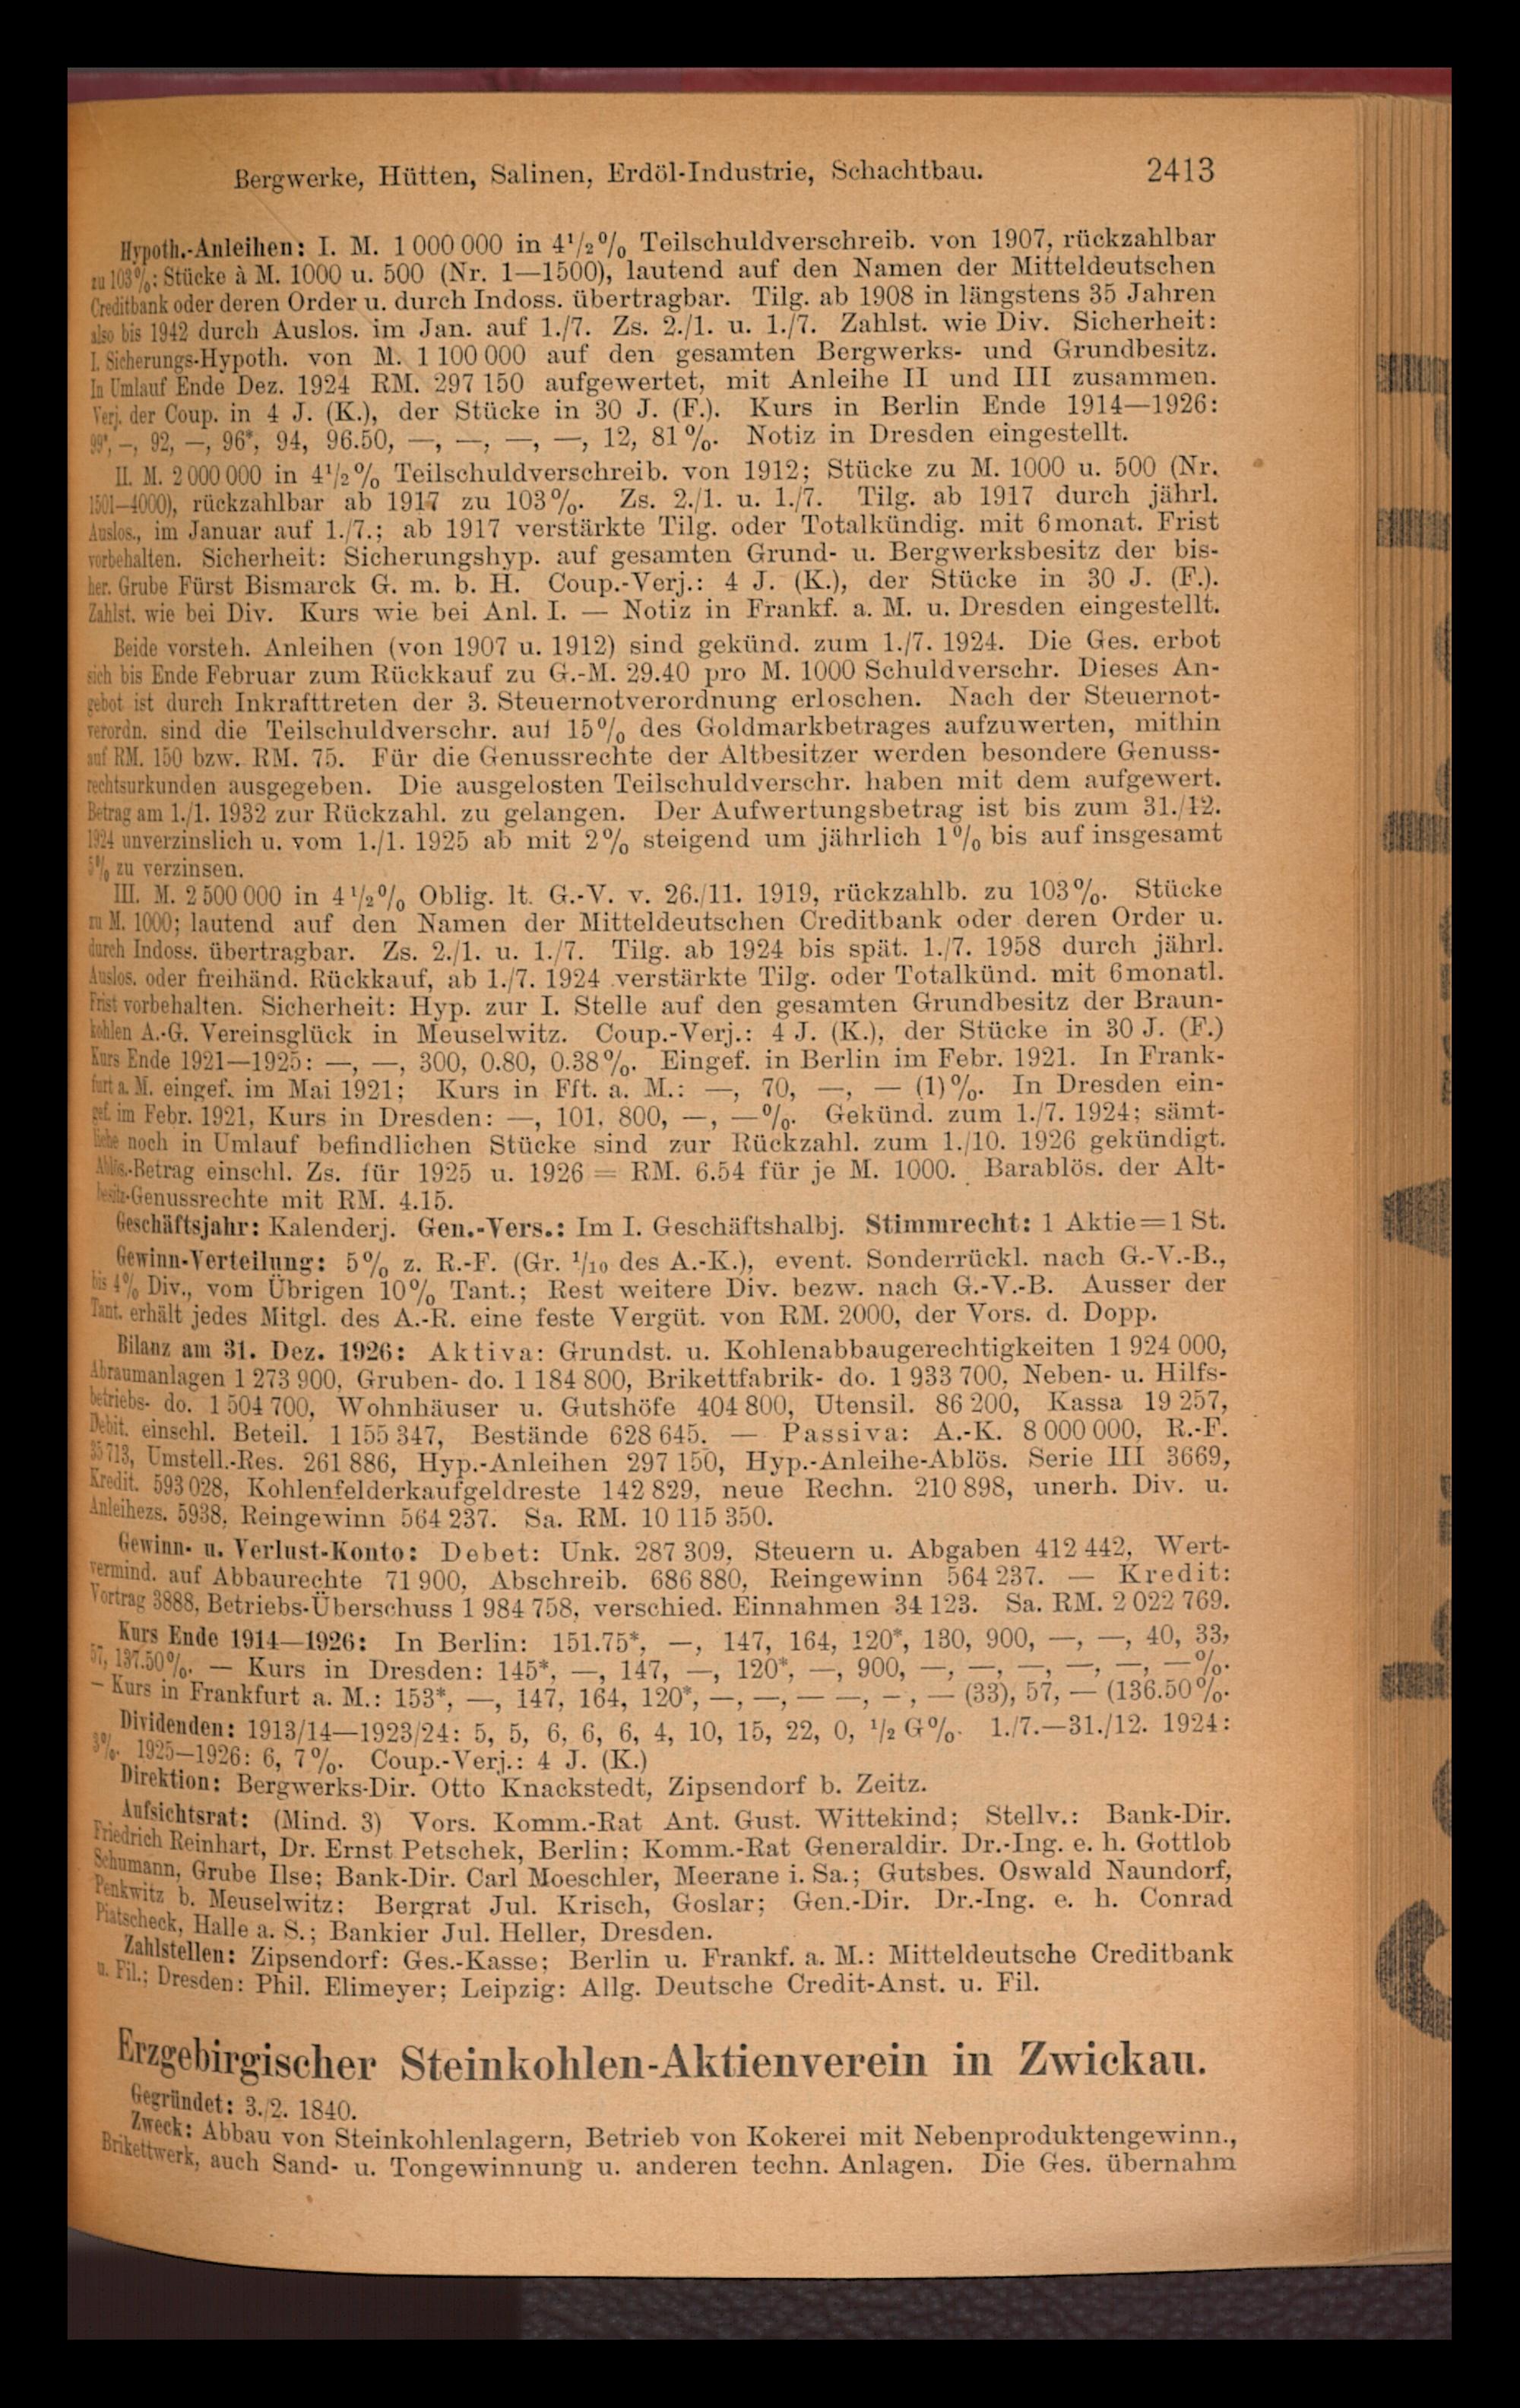 Bergwerke, Hütten, Salinen, Erdöl-Industrie, Schachtbau. 2413
Hypoth.-Anleihen: I. M. 1 000 000 in 4½% Teilschuldverschreib. von 1907, rückzahlbar
zu 103%: Stücke à M. 1000 u. 500 (Nr. 1—1500), lautend auf den Namen der Mitteldeutschen
Creditbank oder deren Order u. durch Indoss. übertragbar. Tilg. ab 1908 in längstens 35 Jahren
also bis 1942 durch Auslos. im Jan. auf 1./7. Zs. 2./1. u. 1./7. Zahlst. wie Div. Sicherheit:
I. Sicherungs-Hypoth. von M. 1 100 000 auf den gesamten Bergwerks- und Grundbesitz.
In Umlauf Ende Dez. 1924 RM. 297 150 aufgewertet, mit Anleihe II und III zusammen.
Verj. der Coup. in 4 J. (K.), der Stücke in 30 J. (F.). Kurs in Berlin Ende 1914—1926:
99*, —, 92, —, 96*, 94, 96.50, —, —, —, —, 12, 81%. Notiz in Dresden eingestellt.
II. M. 2 000 000 in 4½% Teilschuldverschreib. von 1912; Stücke zu M. 1000 u. 500 (Nr.
1501—4000), rückzahlbar ab 1917 zu 103%. Zs. 2./1. u. 1./7. Tilg. ab 1917 durch jährl.
Auslos., im Januar auf 1./7.; ab 1917 verstärkte Tilg. oder Totalkündig. mit 6monat. Frist
vorbehalten. Sicherheit: Sicherungshyp. auf gesamten Grund- u. Bergwerksbesitz der bis-
her. Grube Fürst Bismarck G. m. b. H. Coup.-Verj.: 4 J. (K.), der Stücke in 30 J. (F.).
Zahlst. wie bei Div. Kurs wie bei Anl. I. — Notiz in Frankf. a. M. u. Dresden eingestellt.
Beide vorsteh. Anleihen (von 1907 u. 1912) sind gekünd. zum 1./7. 1924. Die Ges. erbot
sich bis Ende Februar zum Rückkauf zu G.-M. 29.40 pro M. 1000 Schuldverschr. Dieses An-
gebot ist durch Inkrafttreten der 3. Steuernotverordnung erloschen. Nach der Steuernot-
verordn. sind die Teilschuldverschr. auf 15% des Goldmarkbetrages aufzuwerten, mithin
auf RM. 150 bzw. RM. 75. Für die Genussrechte der Altbesitzer werden besondere Genuss-
rechtsurkunden ausgegeben. Die ausgelosten Teilschuldverschr. haben mit dem aufgewert.
Betrag am 1./1. 1932 zur Rückzahl. zu gelangen. Der Aufwertungsbetrag ist bis zum 31./12.
1924 unverzinslich u. vom 1./1. 1925 ab mit 2% steigend um jährlich 1% bis auf insgesamt
5% zu verzinsen.
III. M. 2 500 000 in 4½% Oblig. lt. G.-V. v. 26./11. 1919, rückzahlb. zu 103%. Stücke
zu M. 1000; lautend auf den Namen der Mitteldeutschen Creditbank oder deren Order u.
durch Indoss. übertragbar. Zs. 2./1. u. 1./7. Tilg. ab 1924 bis spät. 1./7. 1958 durch jährl.
Auslos. oder freihänd. Rückkauf, ab 1./7. 1924 verstärkte Tilg. oder Totalkünd. mit 6monatl.
Frist vorbehalten. Sicherheit: Hyp. zur I. Stelle auf den gesamten Grundbesitz der Braun-
kohlen A.-G. Vereinsglück in Meuselwitz. Coup.-Verj.: 4 J. (K.), der Stücke in 30 J. (F.)
Kurs Ende 1921—1925: —, —, 300, 0.80, 0.38%. Eingef. in Berlin im Febr. 1921. In Frank-
furt a. M. eingef. im Mai 1921; Kurs in Fft. a. M.: —, 70, —, — (1)%. In Dresden ein-
gef. im Febr. 1921, Kurs in Dresden: —, 101, 800, —, —%. Gekünd. zum 1./7. 1924; sämt-
liche noch in Umlauf befindlichen Stücke sind zur Rückzahl. zum 1./10. 1926 gekündigt.
Ablös.-Betrag einschl. Zs. für 1925 u. 1926 = RM. 6.54 für je M. 1000. Barablös. der Alt-
besitz-Genussrechte mit RM. 4.15.
Geschäftsjahr: Kalenderj. Gen.-Vers.: Im I. Geschäftshalbj. Stimmrecht: 1 Aktie=1 St.
Gewinn-Verteilung: 5% z. R.-F. (Gr. 1/10 des A.-K.), event. Sonderrückl. nach G.-V.-B.,
bis 4% Div., vom Übrigen 10% Tant.; Rest weitere Div. bezw. nach G.-V.-B. Ausser der
Tant. erhält jedes Mitgl. des A.-R. eine feste Vergüt. von RM. 2000, der Vors. d. Dopp.
Bilanz am 31. Dez. 1926: Aktiva: Grundst. u. Kohlenabbaugerechtigkeiten 1 924 000,
Abraumanlagen 1 273 900, Gruben- do. 1 184 800, Brikettfabrik- do. 1 933 700, Neben- u. Hilfs-
betriebs- do. 1 504 700, Wohnhäuser u. Gutshöfe 404 800, Utensil. 86 200, Kassa 19 257,
Debit. einschl. Beteil. 1 155 347, Bestände 628 645. — Passiva: A.-K. 8 000 000, R.-F.
35 713, Umstell.-Res. 261 886, Hyp.-Anleihen 297 150, Hyp.-Anleihe-Ablös. Serie III 3669,
Kredit. 593 028, Kohlenfelderkaufgeldreste 142 829, neue Rechn. 210 898, unerh. Div. u.
Anleihezs. 5938, Reingewinn 564 237. Sa. RM. 10 115 350.
Gewinn- u. Verlust-Konto: Debet: Unk. 287 309, Steuern u. Abgaben 412 442, Wert-
vermind. auf Abbaurechte 71 900, Abschreib. 686 880, Reingewinn 564 237. — Kredit:
Vortrag 3888, Betriebs-Überschuss 1 984 758, verschied. Einnahmen 34 123. Sa. RM. 2 022 769.
Kurs Ende 1914—1926: In Berlin: 151.75*, —, 147, 164, 120*, 130, 900, —, —, 40, 33,
57, 137.50%. — Kurs in Dresden: 145*, —, 147, —, 120*, —, 900, —, —, —, —, —, —%.
— Kurs in Frankfurt a. M.: 153*, —, 147, 164, 120*, —, —, — —, —, — (33), 57, — (136.50%.
Dividenden: 1913/14—1923/24: 5, 5, 6, 6, 6, 4, 10, 15, 22, 0, ½ G%. 1./7.—31./12. 1924:
3%. 1925—1926: 6, 7%. Coup.-Verj.: 4 J. (K.)
Direktion: Bergwerks-Dir. Otto Knackstedt, Zipsendorf b. Zeitz.
Aufsichtsrat: (Mind. 3) Vors. Komm.-Rat Ant. Gust. Wittekind; Stellv.: Bank-Dir.
Friedrich Reinhart, Dr. Ernst Petschek, Berlin; Komm.-Rat Generaldir. Dr.-Ing. e. h. Gottlob
Schumann, Grube Ilse; Bank-Dir. Carl Moeschler, Meerane i. Sa.; Gutsbes. Oswald Naundorf,
Penkwitz b. Meuselwitz; Bergrat Jul. Krisch, Goslar; Gen.-Dir. Dr.-Ing. e. h. Conrad
Piatscheck, Halle a. S.; Bankier Jul. Heller, Dresden.
Zahlstellen: Zipsendorf: Ges.-Kasse; Berlin u. Frankf. a. M.: Mitteldeutsche Creditbank
u. Fil.; Dresden: Phil. Elimeyer; Leipzig: Allg. Deutsche Credit-Anst. u. Fil.
Erzgebirgischer Steinkohlen-Aktienverein in Zwickau.
Gegründet: 3./2. 1840.
Zweck: Abbau von Steinkohlenlagern, Betrieb von Kokerei mit Nebenproduktengewinn.,
Brikettwerk, auch Sand- u. Tongewinnung u. anderen techn. Anlagen. Die Ges. übernahm